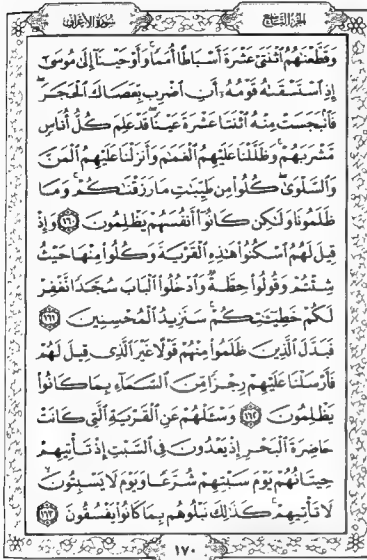 الجزء التاسع
سورة الأعراف
وَقَطَّعْنَٰهُمُ ٱثْنَتَىْ عَشْرَةَ أَسْبَاطًا أُمَمًا ۚ وَأَوْحَيْنَآ إِلَىٰ مُوسَىٰٓ
إِذِ ٱسْتَسْقَىٰهُ قَوْمُهُۥٓ أَنِ ٱضْرِب بِّعَصَاكَ ٱلْحَجَرَ ۖ
فَٱنۢبَجَسَتْ مِنْهُ ٱثْنَتَا عَشْرَةَ عَيْنًا ۖ قَدْ عَلِمَ كُلُّ أُنَاسٍ
مَّشْرَبَهُمْ ۚ وَظَلَّلْنَا عَلَيْهِمُ ٱلْغَمَٰمَ وَأَنزَلْنَا عَلَيْهِمُ ٱلْمَنَّ
وَٱلسَّلْوَىٰ ۖ كُلُوا۟ مِن طَيِّبَٰتِ مَا رَزَقْنَٰكُمْ ۚ وَمَا
ظَلَمُونَا وَلَٰكِن كَانُوٓا۟ أَنفُسَهُمْ يَظْلِمُونَ ١٦٠ وَإِذْ
قِيلَ لَهُمُ ٱسْكُنُوا۟ هَٰذِهِ ٱلْقَرْيَةَ وَكُلُوا۟ مِنْهَا حَيْثُ
شِئْتُمْ وَقُولُوا۟ حِطَّةٌ وَٱدْخُلُوا۟ ٱلْبَابَ سُجَّدًا نَّغْفِرْ
لَكُمْ خَطِيٓـَٰٔتِكُمْ ۚ سَنَزِيدُ ٱلْمُحْسِنِينَ ١٦١
فَبَدَّلَ ٱلَّذِينَ ظَلَمُوا۟ مِنْهُمْ قَوْلًا غَيْرَ ٱلَّذِى قِيلَ لَهُمْ
فَأَرْسَلْنَا عَلَيْهِمْ رِجْزًا مِّنَ ٱلسَّمَآءِ بِمَا كَانُوا۟
يَظْلِمُونَ ١٦٢ وَسْـَٔلْهُمْ عَنِ ٱلْقَرْيَةِ ٱلَّتِى كَانَتْ
حَاضِرَةَ ٱلْبَحْرِ إِذْ يَعْدُونَ فِى ٱلسَّبْتِ إِذْ تَأْتِيهِمْ
حِيتَانُهُمْ يَوْمَ سَبْتِهِمْ شُرَّعًا وَيَوْمَ لَا يَسْبِتُونَ ۙ
لَا تَأْتِيهِمْ ۚ كَذَٰلِكَ نَبْلُوهُم بِمَا كَانُوا۟ يَفْسُقُونَ ١٦٣
١٧٠